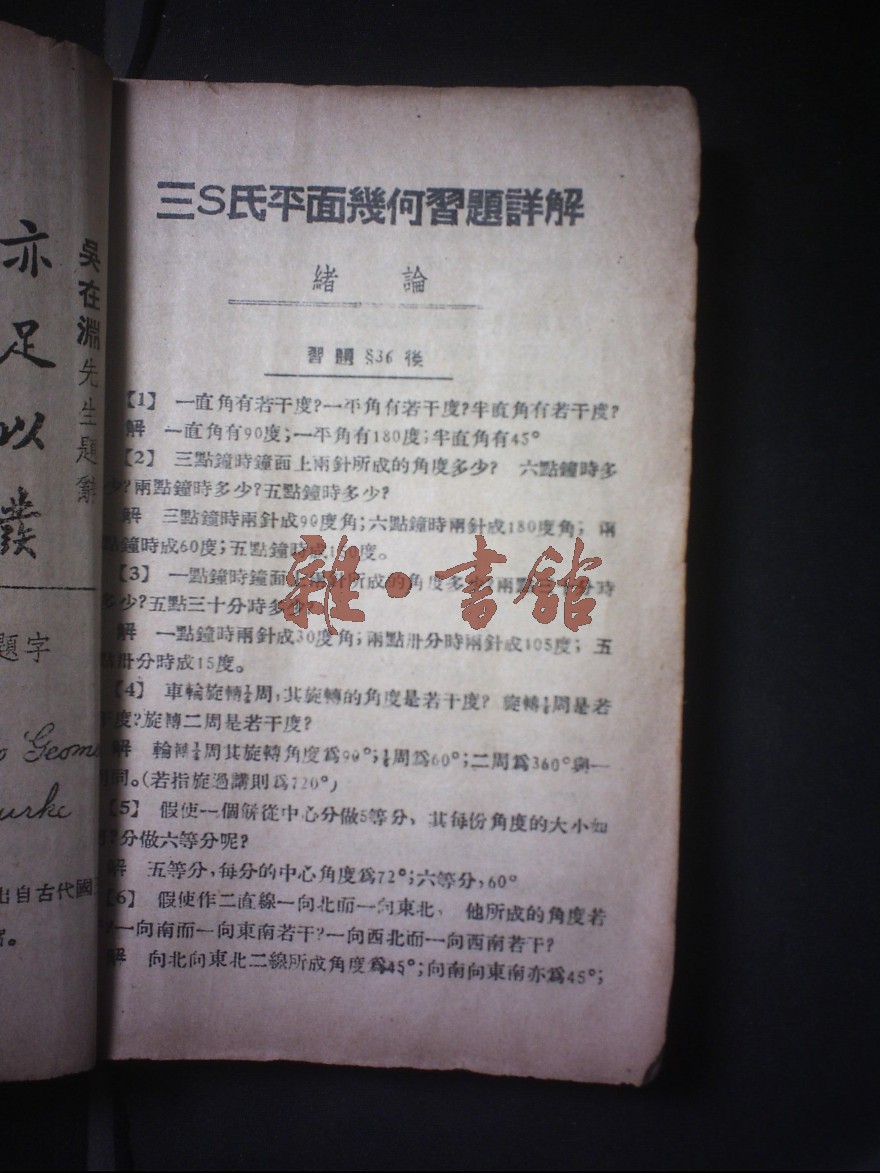 三S氏平面幾何習題詳解
緒 論
習題 §36 後
【1】 一直角有若干度?一平角有若干度?半直角有若干度?
解 一直角有90度;一平角有180度;半直角有45°
【2】 三點鐘時鐘面上兩針所成的角度多少? 六點鐘時多
?兩點鐘時多少?五點鐘時多少?
解 三點鐘時兩針成90度角;六點鐘時兩針成180角度; 兩
鐘時成60度;五點鐘時成150度。
【3】 一點鐘時鐘面上兩針所成的角度多少?兩點三十分時
多少?五點三十分時多少?
解 一點鐘時兩針成30度角;兩點卅分時兩針成105度; 五
卅分時成15度。
【4】 車輪旋轉¼周,其旋轉的角度是若干度? 旋轉周是若
度?旋轉二周是若干度?
解 輪轉¼周其旋轉角度爲90°;周爲60°;二周爲360°與一
同。(若指旋過講則爲720°)
【5】 假使一個餅從中心分做5等分、其每份角度的大小如
分做六等分呢?
解 五等分,每分的中心角度爲72°;六等分,60°
【6】 假使作二直線一向北而一向東北、 他所成的角度若
?一向南而一向東南若干?一向西北而一向西南若干?
解 向北向東北二線所成角度爲45°;向南向東南亦爲45°;
雜·書館
亦足以發
吳在淵先生題辭
題字
Geom
urke
出自古代國